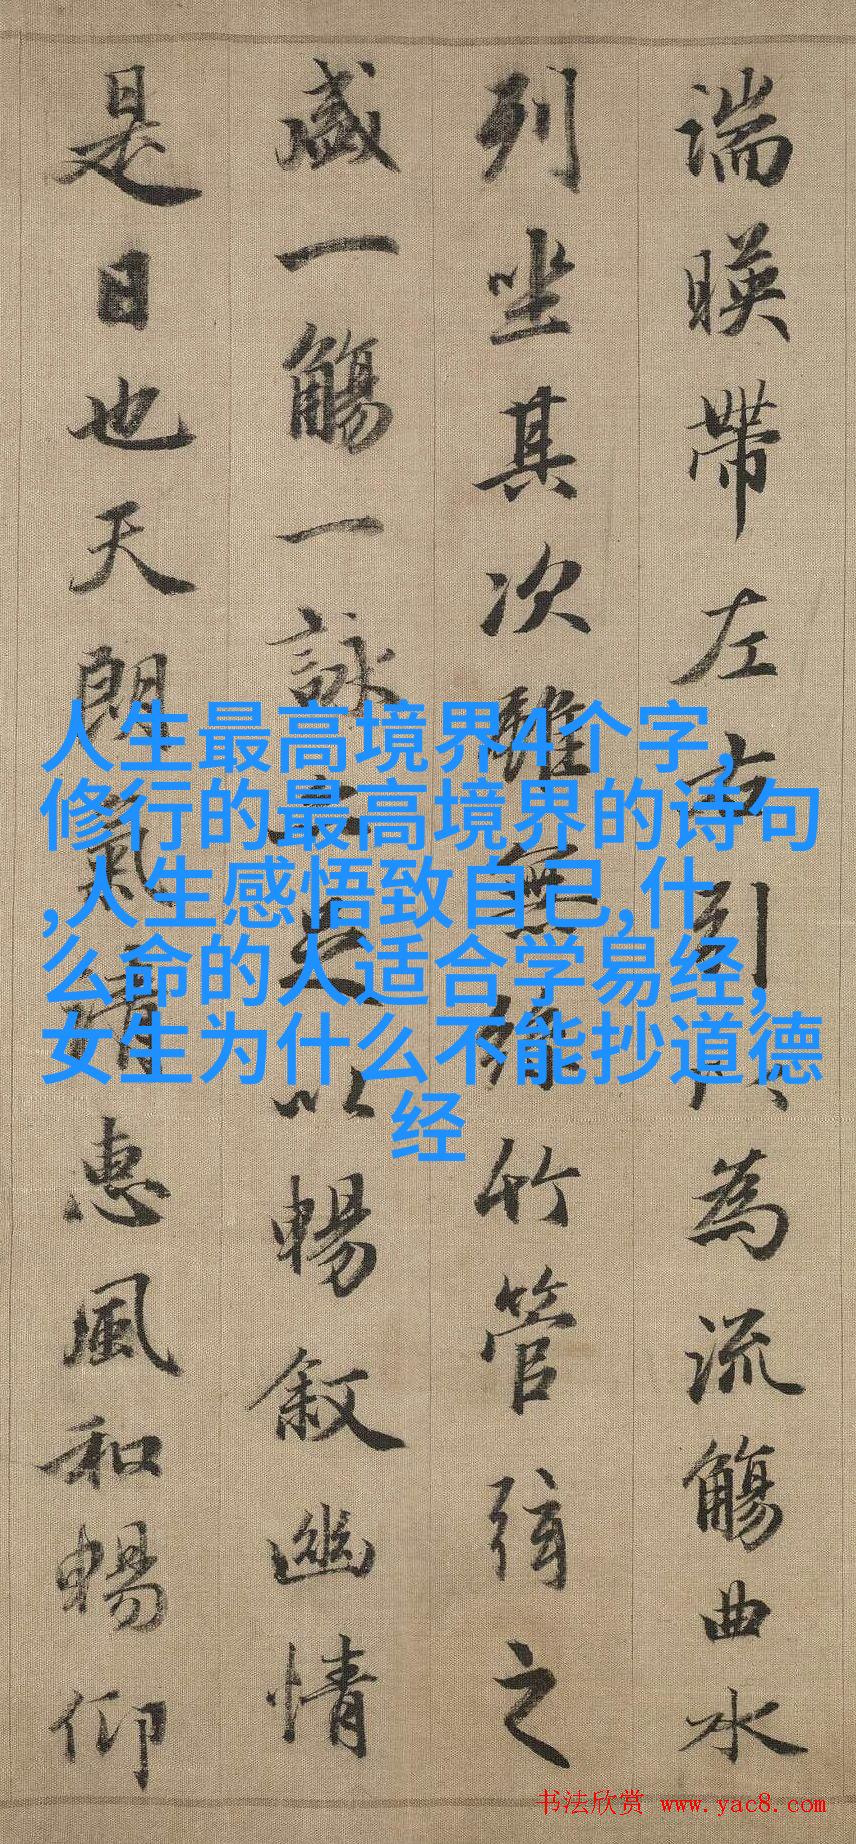 湍暎帶左右引以為流觴曲水
列坐其次雖無絲竹管弦之
盛一觴一詠亦足以暢叙幽情
是日也天朗氣清惠風和暢仰
人生最高境界4个字,
修行的最高境界的诗句
,人生感悟致自己,什
么命的人适合学易经,
女生为什么不能抄道德
经
书法欣赏 www.yac8.com